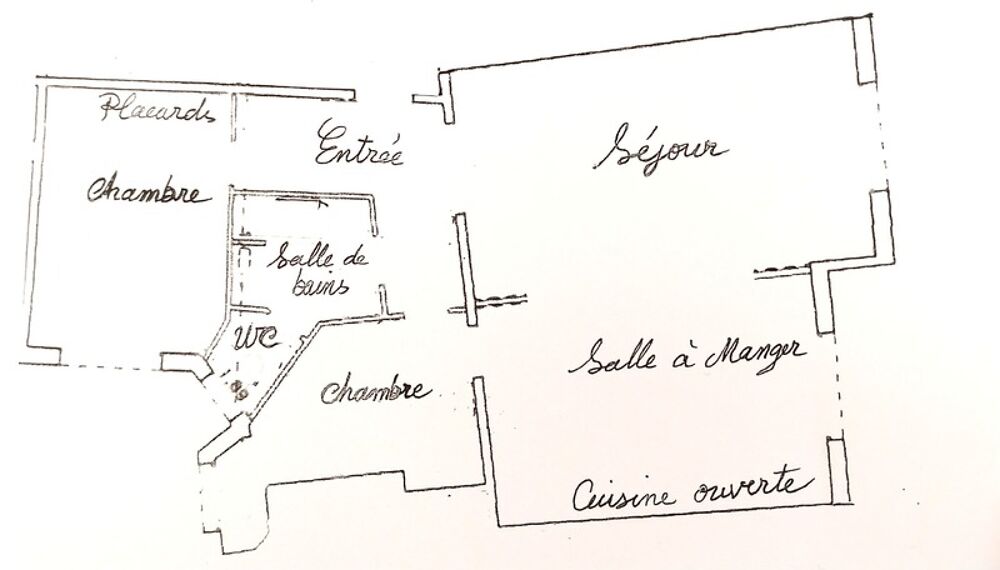 Placards
Entrée
Séjour
Chambre
Salle de
bains
WC
Salle à Manger
Chambre
Cuisine ouverte